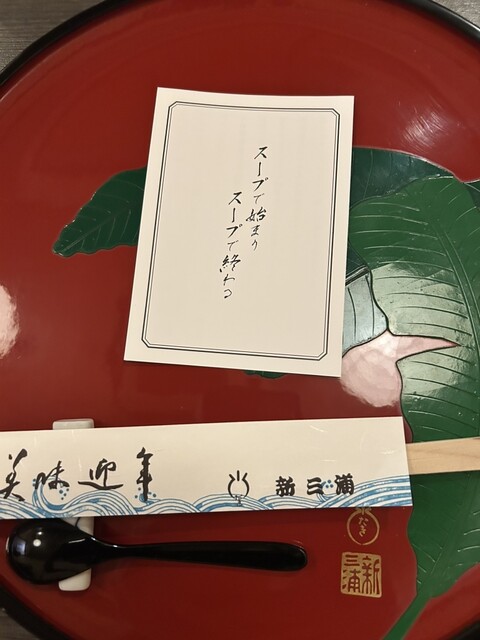 スープで始まり
スープで終わる
美味迎年
新三浦
なぎ
新三浦